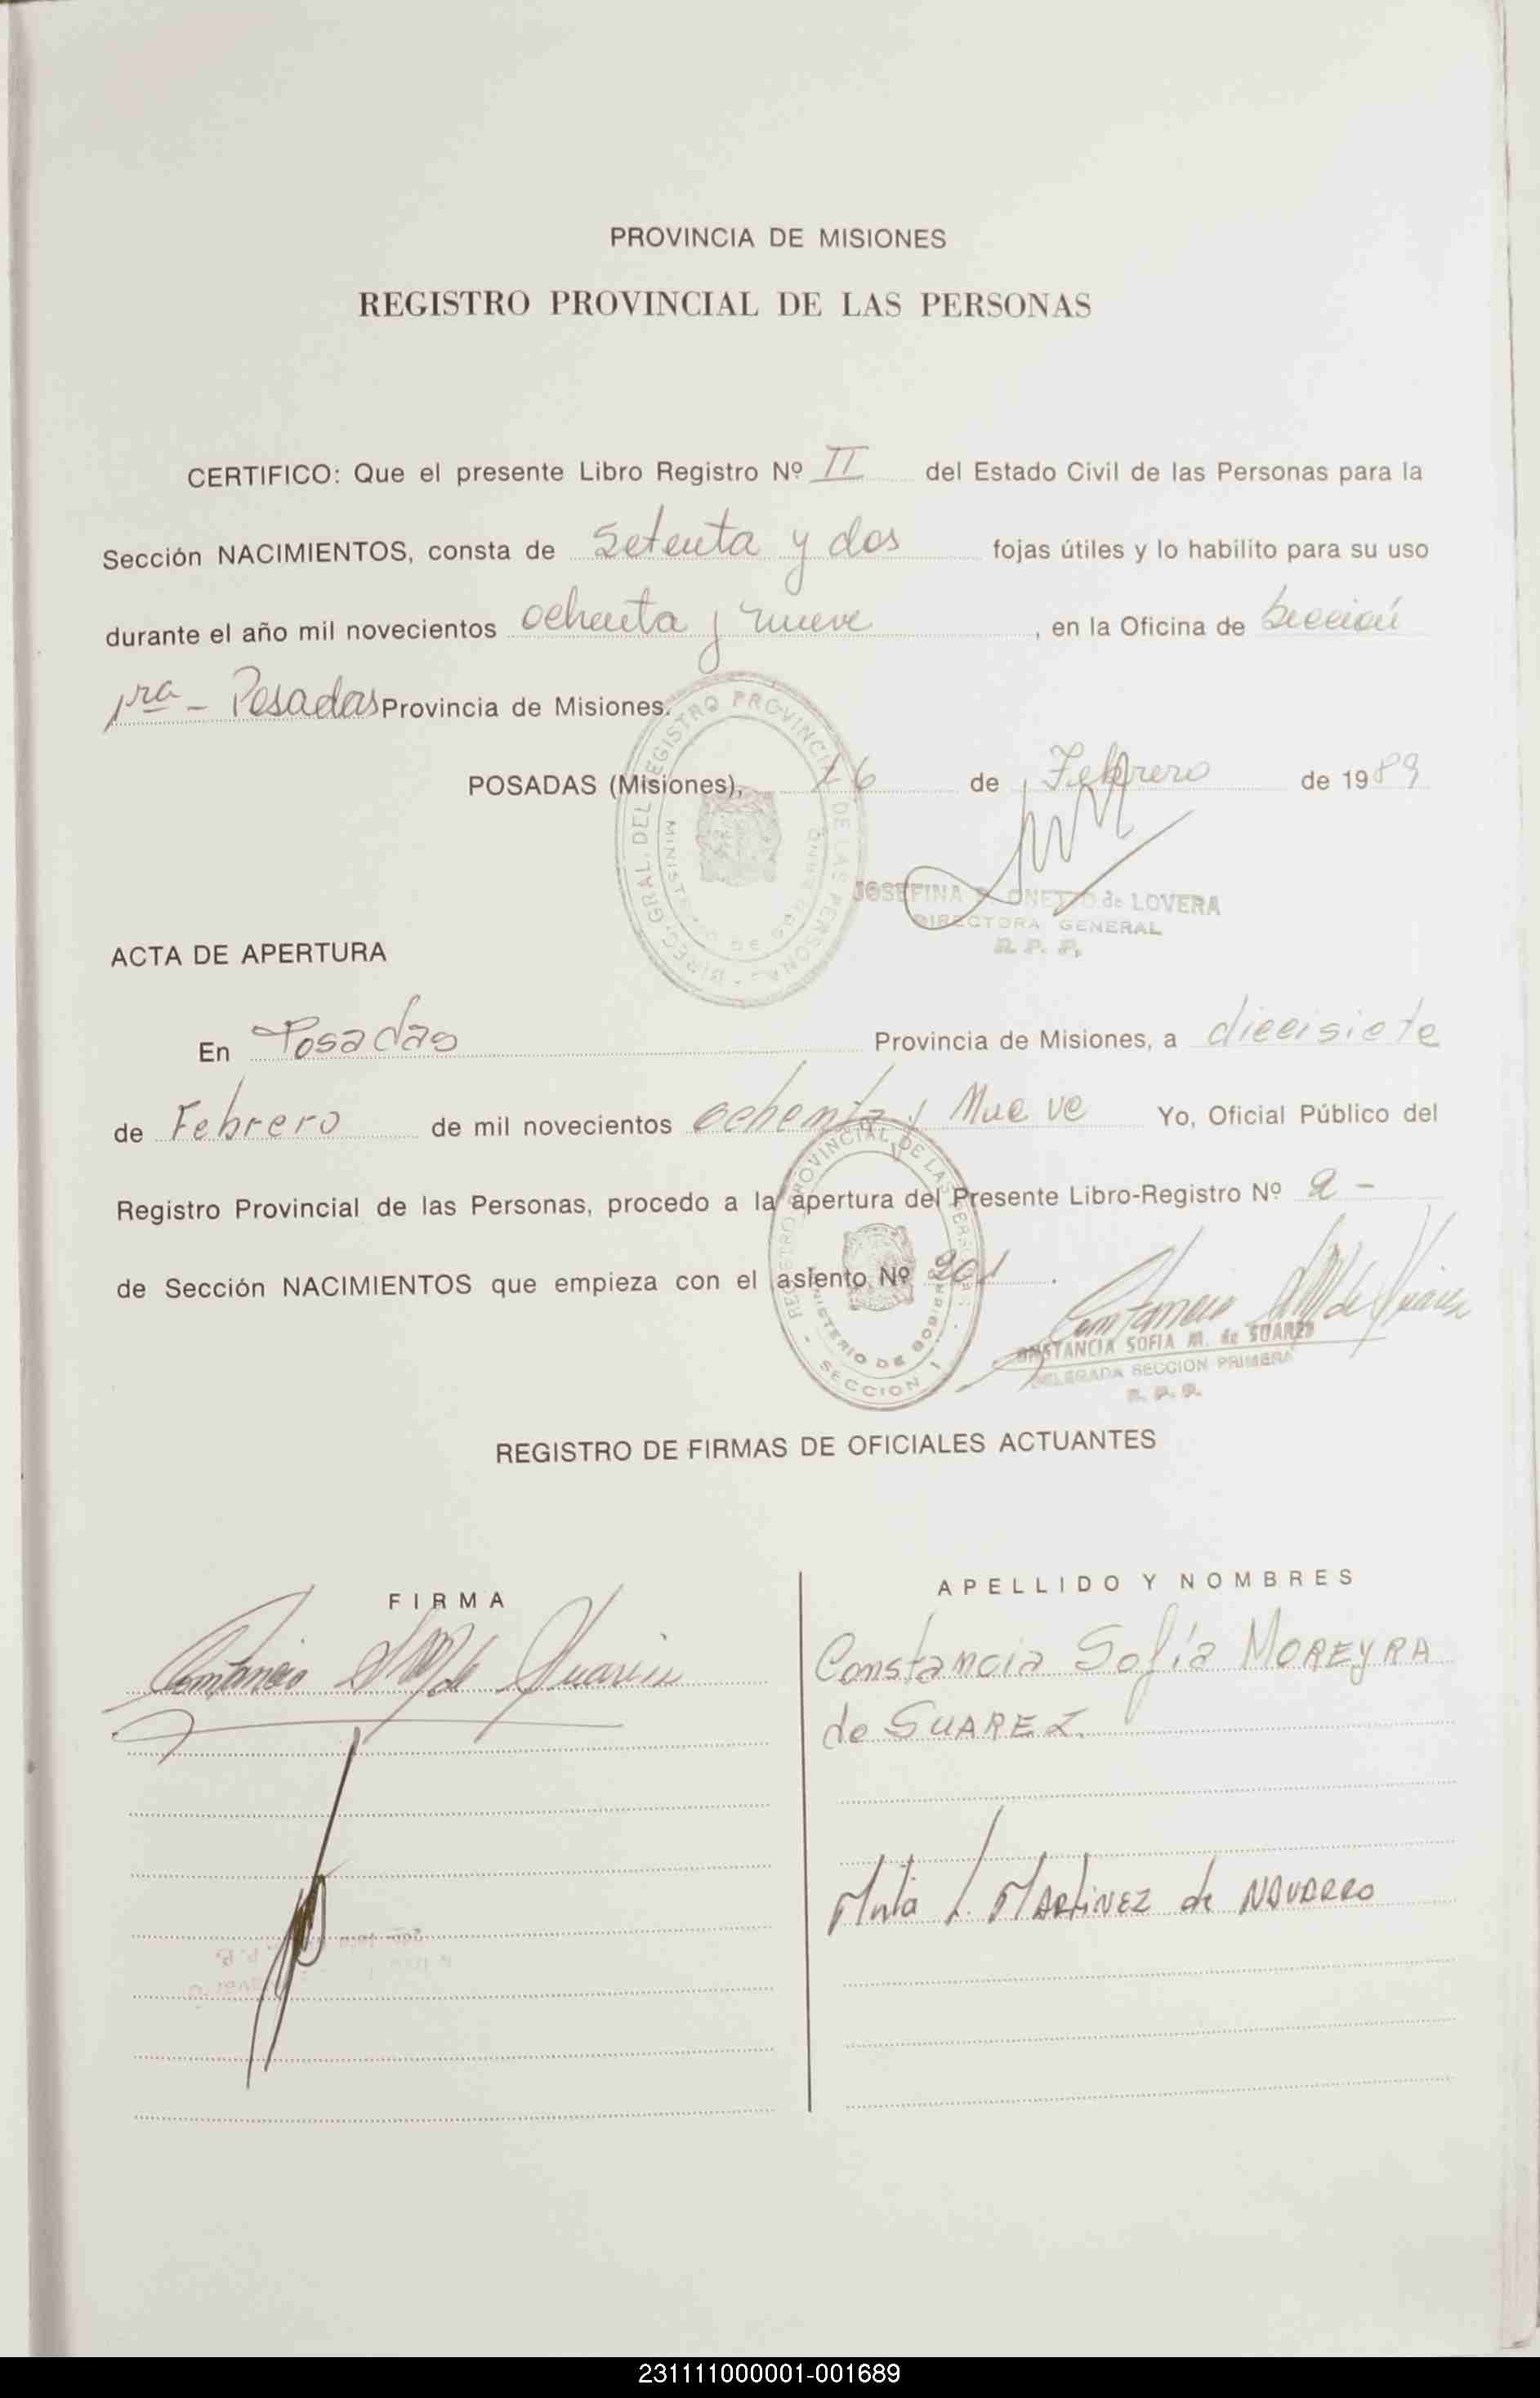 PROVINCIA DE MISIONES
REGISTRO PROVINCIAL DE LAS PERSONAS
CERTIFICO: Que el presente Libro Registro Nº II del Estado Civil de las Personas para la
Sección NACIMIENTOS, consta de Setenta y dos fojas útiles y lo habilito para su uso
durante el año mil novecientos ochenta y nueve, en la Oficina de Sección
1ra - Posadas Provincia de Misiones.
POSADAS (Misiones), 16 de Febrero de 1989
DIREC. GRAL. DEL REGISTRO PROVINCIAL DE LAS PERSONAS
MINISTERIO DE GOBIERNO
JOSEFINA ONETTO de LOVERA
DIRECTORA GENERAL
R. P. P.
ACTA DE APERTURA
En Posadas Provincia de Misiones, a diecisiete
de Febrero de mil novecientos ochenta y Nueve Yo, Oficial Público del
Registro Provincial de las Personas, procedo a la apertura del Presente Libro-Registro Nº 2 -
de Sección NACIMIENTOS que empieza con el asiento Nº 201.
REGISTRO PROVINCIAL DE LAS PERSONAS
MINISTERIO DE GOBIERNO
SECCION 1
CONSTANCIA SOFIA M. de SUAREZ
DELEGADA SECCION PRIMERA
R. P. P.
REGISTRO DE FIRMAS DE OFICIALES ACTUANTES
FIRMA
APELLIDO Y NOMBRES
Constancia Sofía MOREYRA
de SUAREZ.
MARTINEZ de NAVARRO
231111000001-001689